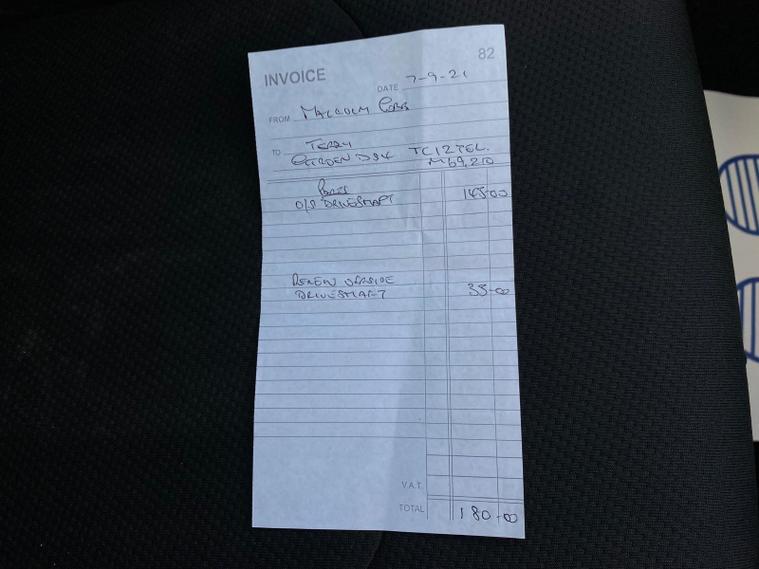 82
INVOICE
DATE 7-9-21
FROM MALCOLM
TO TERRY
M69,210
PARTS
O/S DRIVESHAFT 145-00
RENEW OFFSIDE
DRIVESHAFT 35-00
V.A.T.
TOTAL 180-00